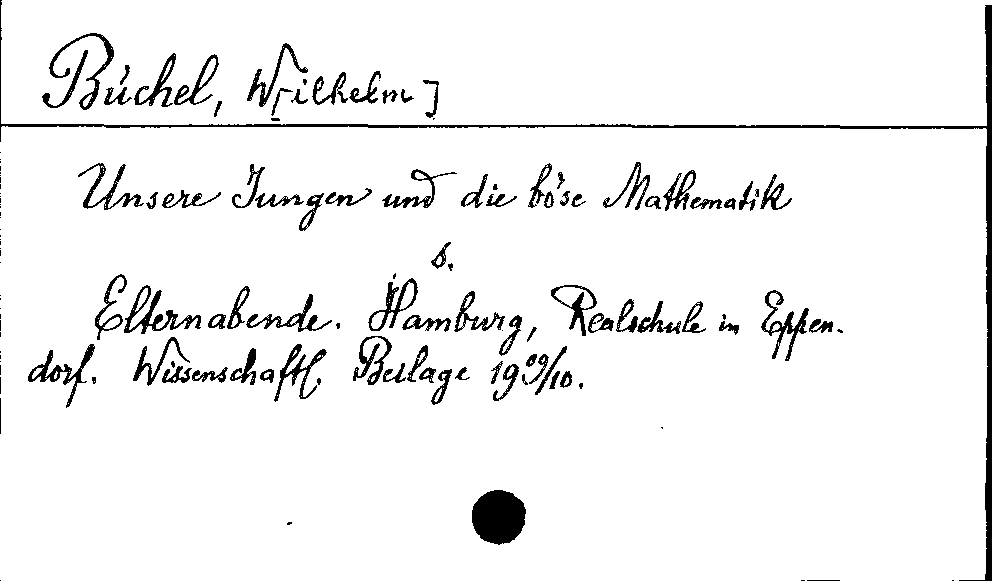 Büchel, W[ilhelm]
Unsere Jungen und die böse Mathematik
s.
Elternabende. Hamburg, Realschule in Eppen-
dorf. Wissenschaftl. Beilage 1909/10.